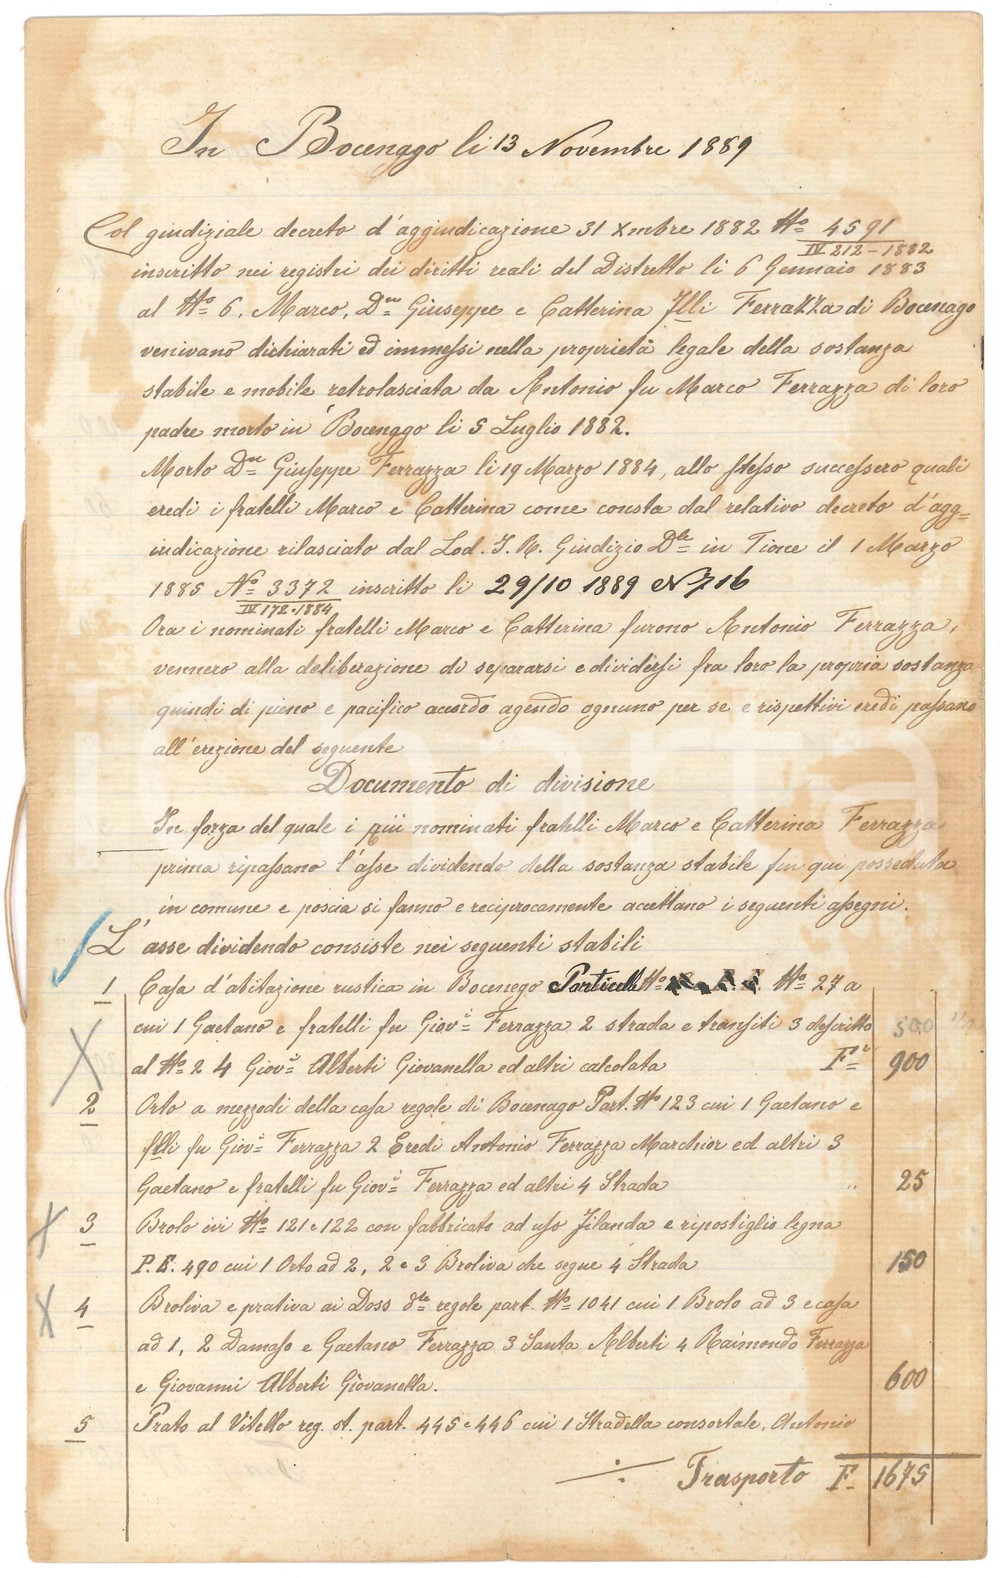 In Bocenago li 13 Novembre 1889
Col giudiziale decreto d'aggiudicazione 31 Xmbre 1882 No 4591
IV 212-1882
inscritto nei registri dei diritti reali del Distretto li 6 Gennaio 1883
al No 6, Marco, Dn Giuseppe e Catterina flli Ferrazza di Bocenago
venivano dichiarati ed immessi nella proprietà legale della sostanza
stabile e mobile retrolasciata da Antonio fu Marco Ferrazza di loro
padre morto in Bocenago li 5 Luglio 1882.
Morto Dn Giuseppe Ferrazza li 19 Marzo 1884, allo stesso successero quali
eredi i fratelli Marco e Catterina come consta dal relativo decreto d'agg=
iudicazione rilasciato dal Lod. I. R. Giudizio Dle in Tione il 1 Marzo
1885 No 3372 inscritto li 29/10 1889 N 716
IV 172.1884
Ora i nominati fratelli Marco e Catterina furono Antonio Ferrazza,
vennero alla deliberazione di separarsi e dividersi fra loro la propria sostanza
quindi di pieno e pacifico acordo agendo ognuno per se e rispettivi eredi passano
all'erezione del seguente
Documento di divisione
In forza del quale i più nominati fratelli Marco e Catterina Ferrazza
prima ripassano l'asse dividendo della sostanza stabile fin qui posseduta
in comune e poscia si fanno e reciprocamente accettano i seguenti assegni.
L'asse dividendo consiste nei seguenti stabili
1 Casa d'abitazione rustica in Bocenego Particella No No 27 a
cui 1 Gaetano e fratelli fu Giov. Ferrazza 2 strada e transiti 3 descritto 500
al No 2 4 Giov. Alberti Giovanella ed altri calcolata F 900
2 Orto a mezzodi della casa regole di Bocenago Part. No 123 cui 1 Gaetano e
flli fu Giov. Ferrazza 2 Eredi Antonio Ferrazza Marchior ed altri 3
Gaetano e fratelli fu Giov. Ferrazza ed altri 4 Strada " 25
3 Brolo ivi No 121 e 122 con fabbricato ad uso filanda e ripostiglio legna
P.E. 490 cui 1 Orto ad 2, 2 e 3 Broliva che segue 4 Strada 150
4 Broliva e prativa ai Doss dte regole part. No 1041 cui 1 Brolo ad 3 e casa
ad 1, 2 Damaso e Gaetano Ferrazza 3 Santa Alberti 4 Raimondo Ferrazza
e Giovanni Alberti Giovanella. 600
5 Prato al Vitello reg. st. part. 445 e 446 cui 1 Stradella consortale, Antonio
Trasporto F. 1675